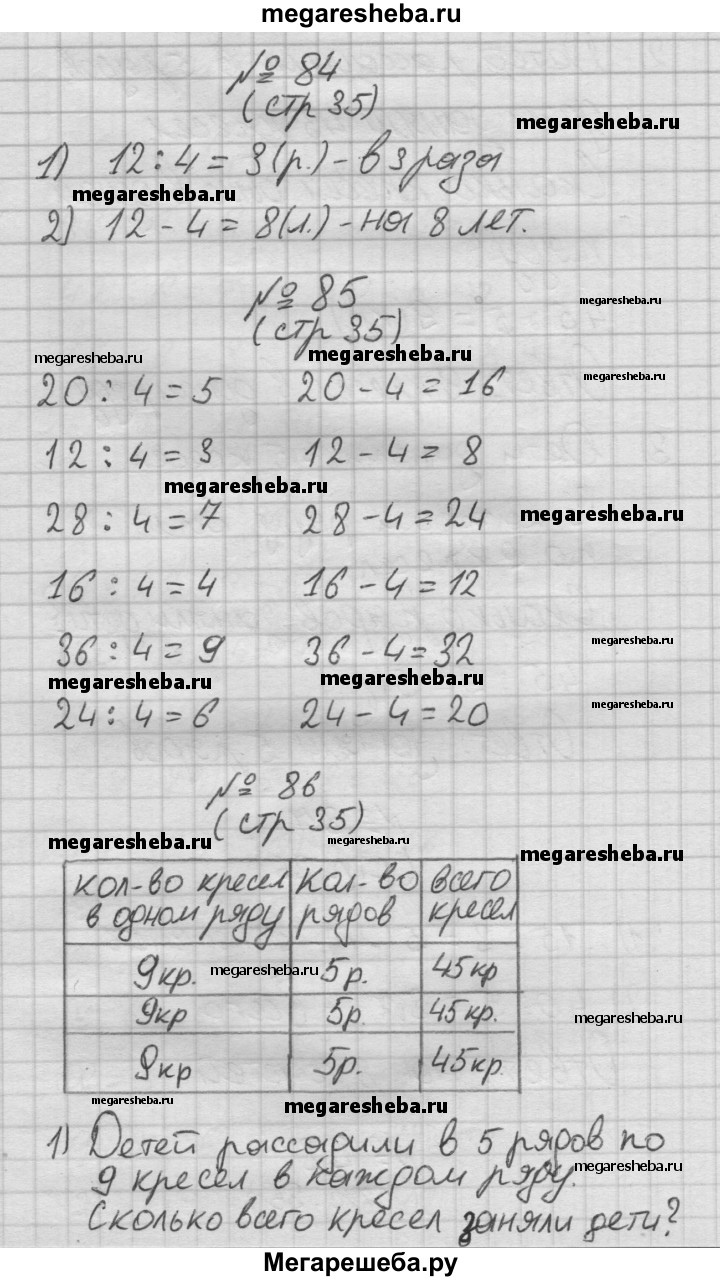 megaresheba.ru
№ 84
(стр 35)
megaresheba.ru
1) 12 : 4 = 3(р.) - в 3 раза
megaresheba.ru
2) 12 - 4 = 8(л.) - на 8 лет.
№ 85
megaresheba.ru
(стр 35)
megaresheba.ru megaresheba.ru
megaresheba.ru
20 : 4 = 5 20 - 4 = 16
12 : 4 = 3 12 - 4 = 8
megaresheba.ru
28 : 4 = 7 28 - 4 = 24 megaresheba.ru
16 : 4 = 4 16 - 4 = 12
36 : 4 = 9 36 - 4 = 32 megaresheba.ru
megaresheba.ru megaresheba.ru
24 : 4 = 6 24 - 4 = 20 megaresheba.ru
№ 86
(стр 35)
megaresheba.ru megaresheba.ru megaresheba.ru
кол-во кресел кол-во всего
в одном ряду рядов кресел
9кр. megaresheba.ru 5р. 45кр
9кр 5р. 45кр. megaresheba.ru
9кр 5р. 45кр.
megaresheba.ru megaresheba.ru
1) Детей рассадили в 5 рядов по
9 кресел в каждом ряду. megaresheba.ru
Сколько всего кресел заняли дети?
megaresheba.ru
Мегарешеба.ру